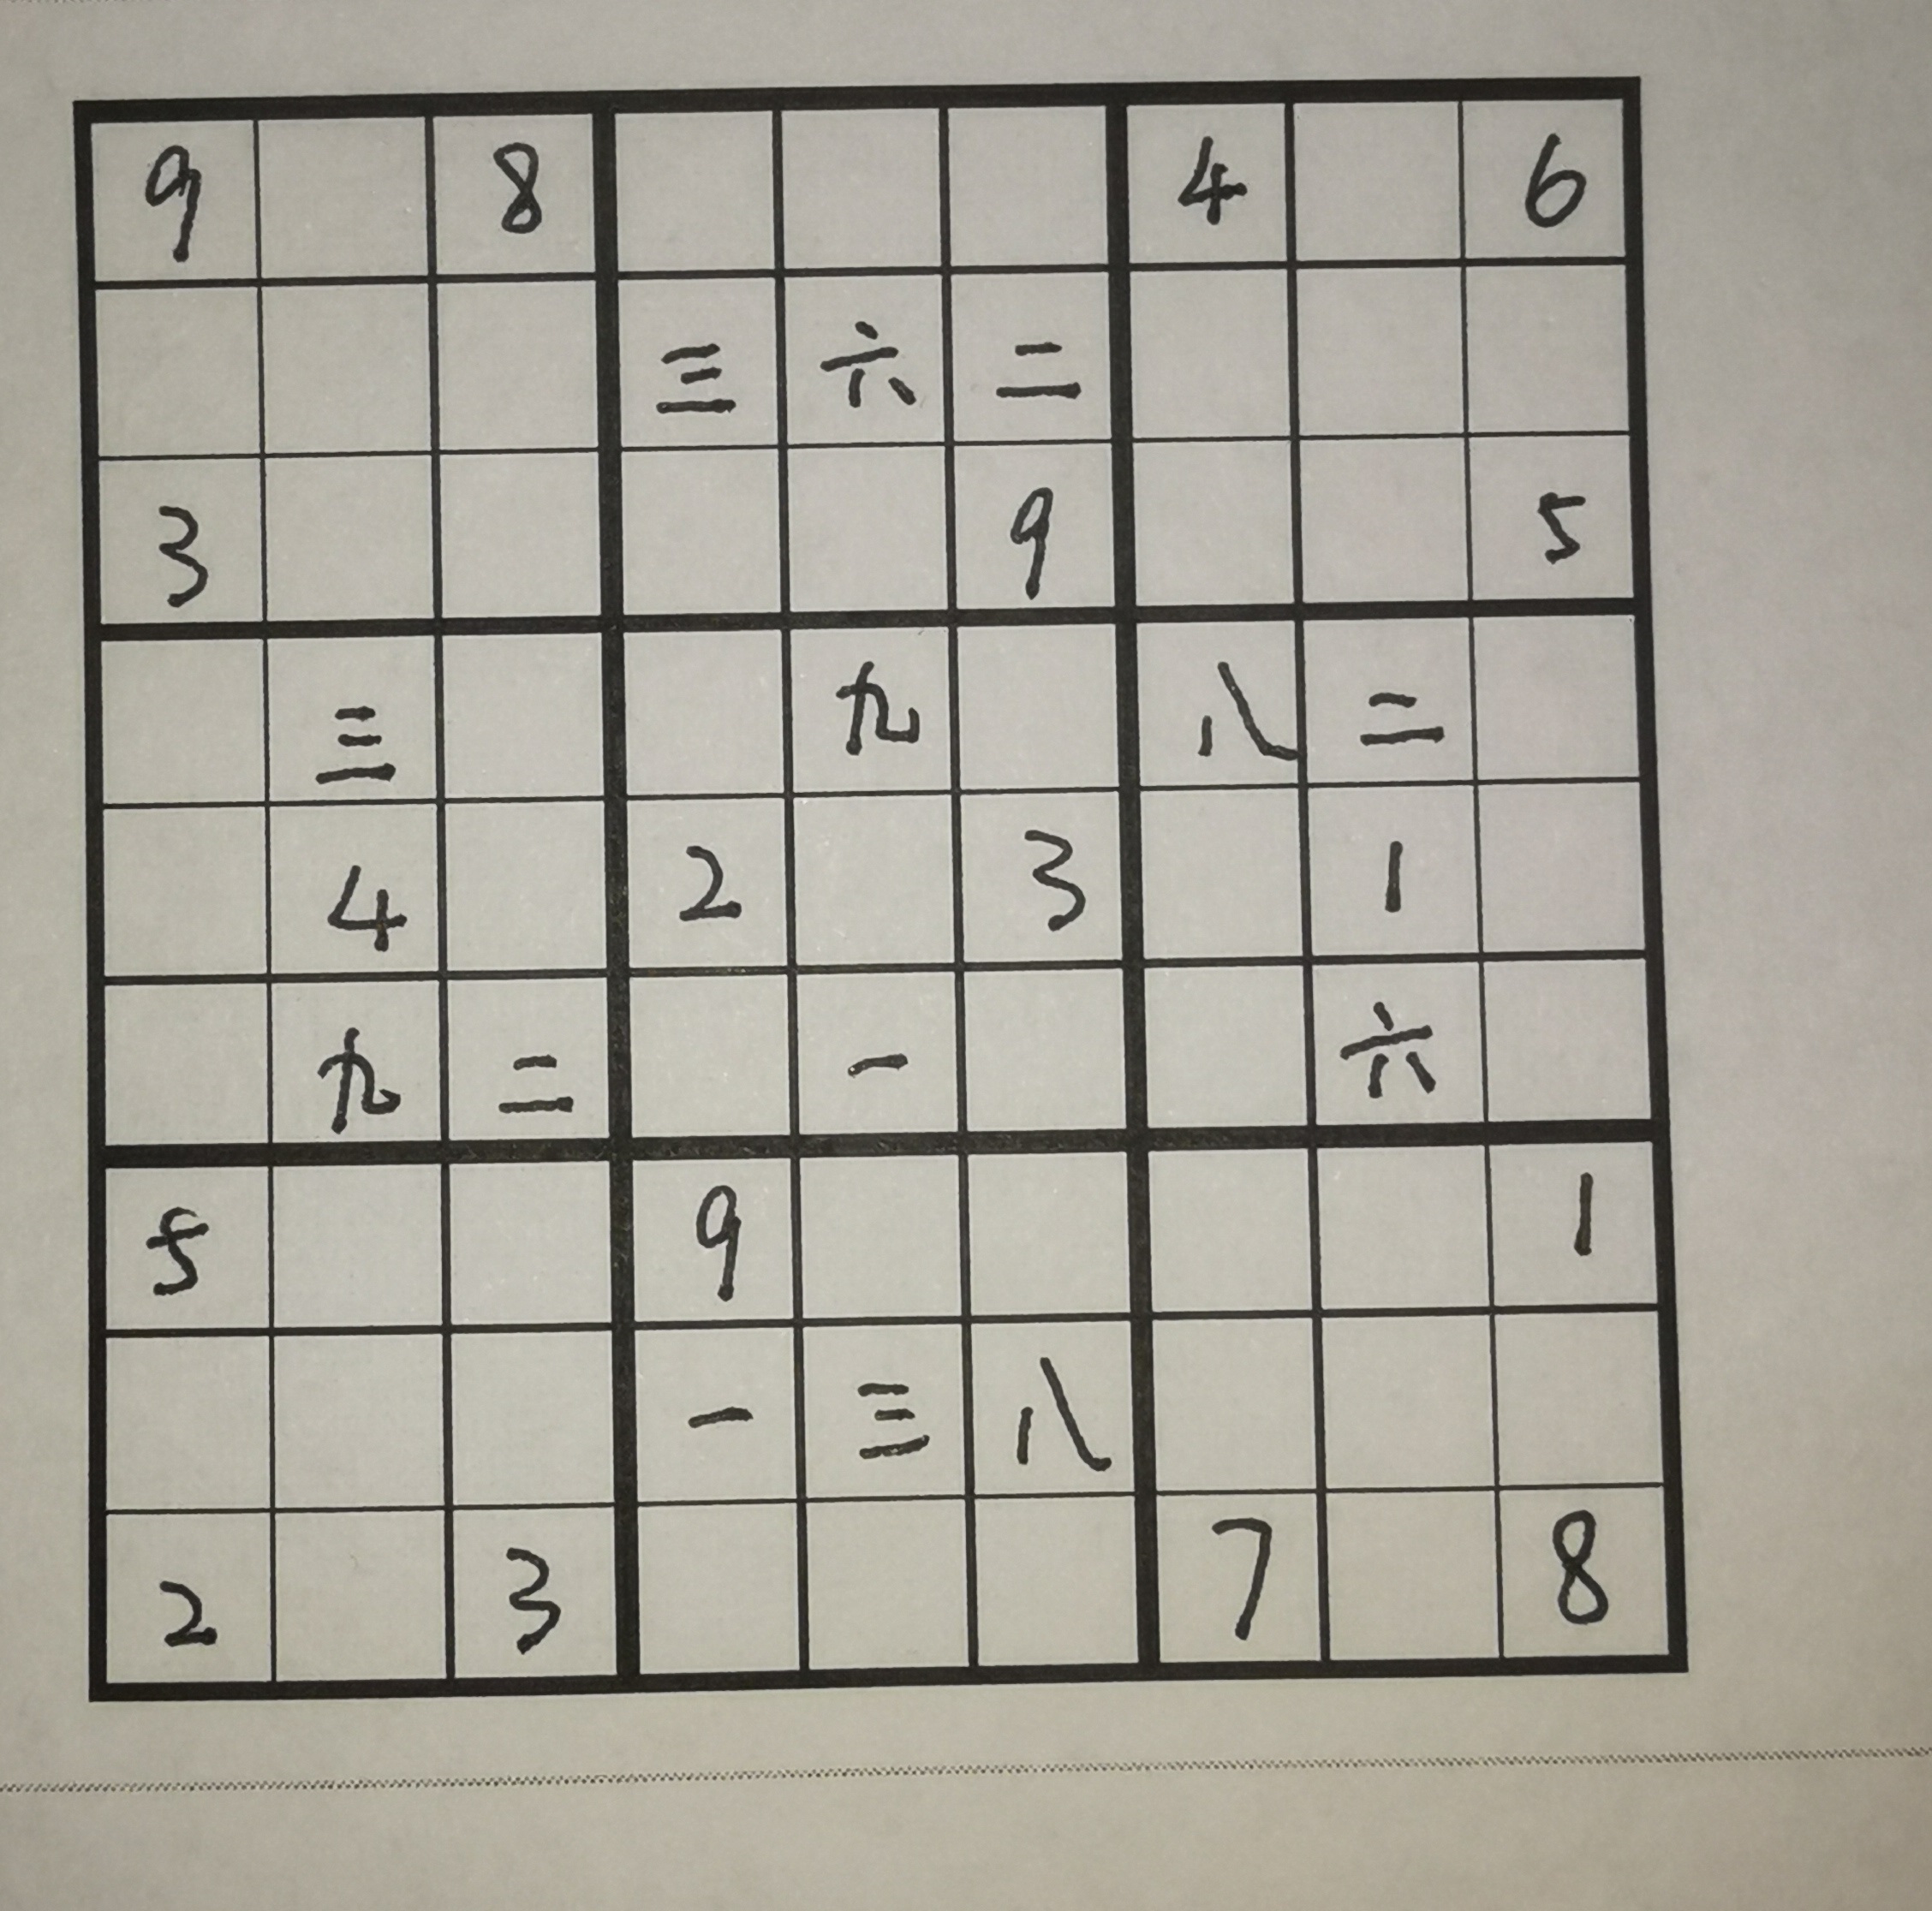 9 8 4 6
三 六 二
3 9 5
三 九 八 二
4 2 3 1
九 二 一 六
5 9 1
一 三 八
2 3 7 8